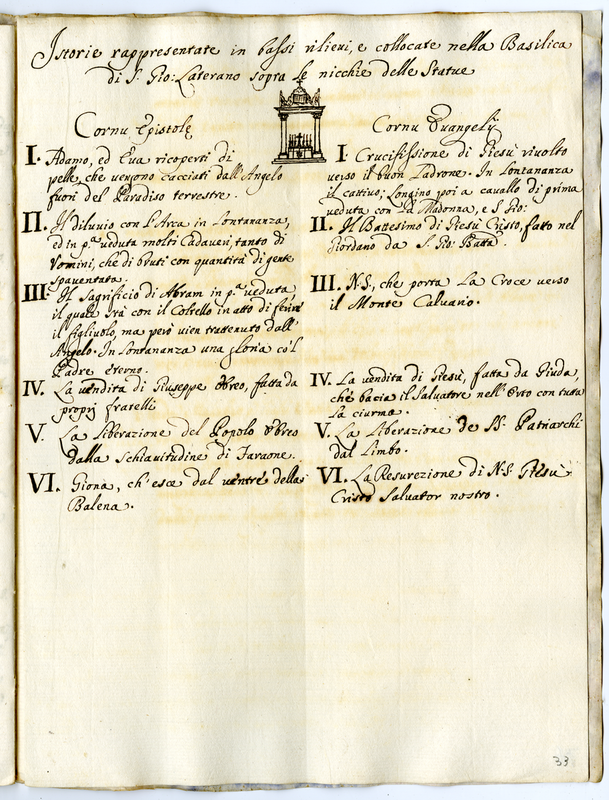 Istorie rappresentate in bassi rilievi, e collocate nella Basilica
di S. Gio: Laterano sopra le nicchie delle Statue
Cornu Epistolę
I. Adamo, ed Eua ricoperti di
pelle, che vengono cacciati dall'Angelo
fuori del Paradiso terrestre.
II. Il diluvio con l'Arca in Lontananza,
ed in pª veduta molti Cadaueri, tanto di
Vomini, che di bruti con quantità di gente
spauentata.
III. Il Sagrificio di Abram in pª veduta
il quale stà con il Coltello in atto di ferire
il figliuolo, ma però vien trattenuto dall'
Angelo. In Lontananza una gloria co'l
Padre eterno.
IV. La vendita di Giuseppe Ebreo, fatta da
proprj fratelli
V. La Liberazione del Popolo Ebreo
dalla schiauitudine di Faraone.
VI. Giona, ch'esce dal ventre della
Balena.
Cornu Euangelij
I. Crucifissione di Giesù riuolto
verso il buon Ladrone. In Lontananza
il cattiuo; Longino poi a cavallo di prima
veduta con La Madonna, e S. Gio:
II. Il Battesimo di Giesù Cristo, fatto nel
Giordano da S. Gio: Battª
III. N.S., che porta La Croce verso
il Monte Caluario.
IV. La vendita di Giesù, fatta da Giuda,
che bacia il Salvatore nell'Orto con tutta
La ciurma.
V. La Liberazione de SS. Patriarchi
dal Limbo.
VI. La Resurezione di N.S. Giesù
Cristo Saluator nostro.
33